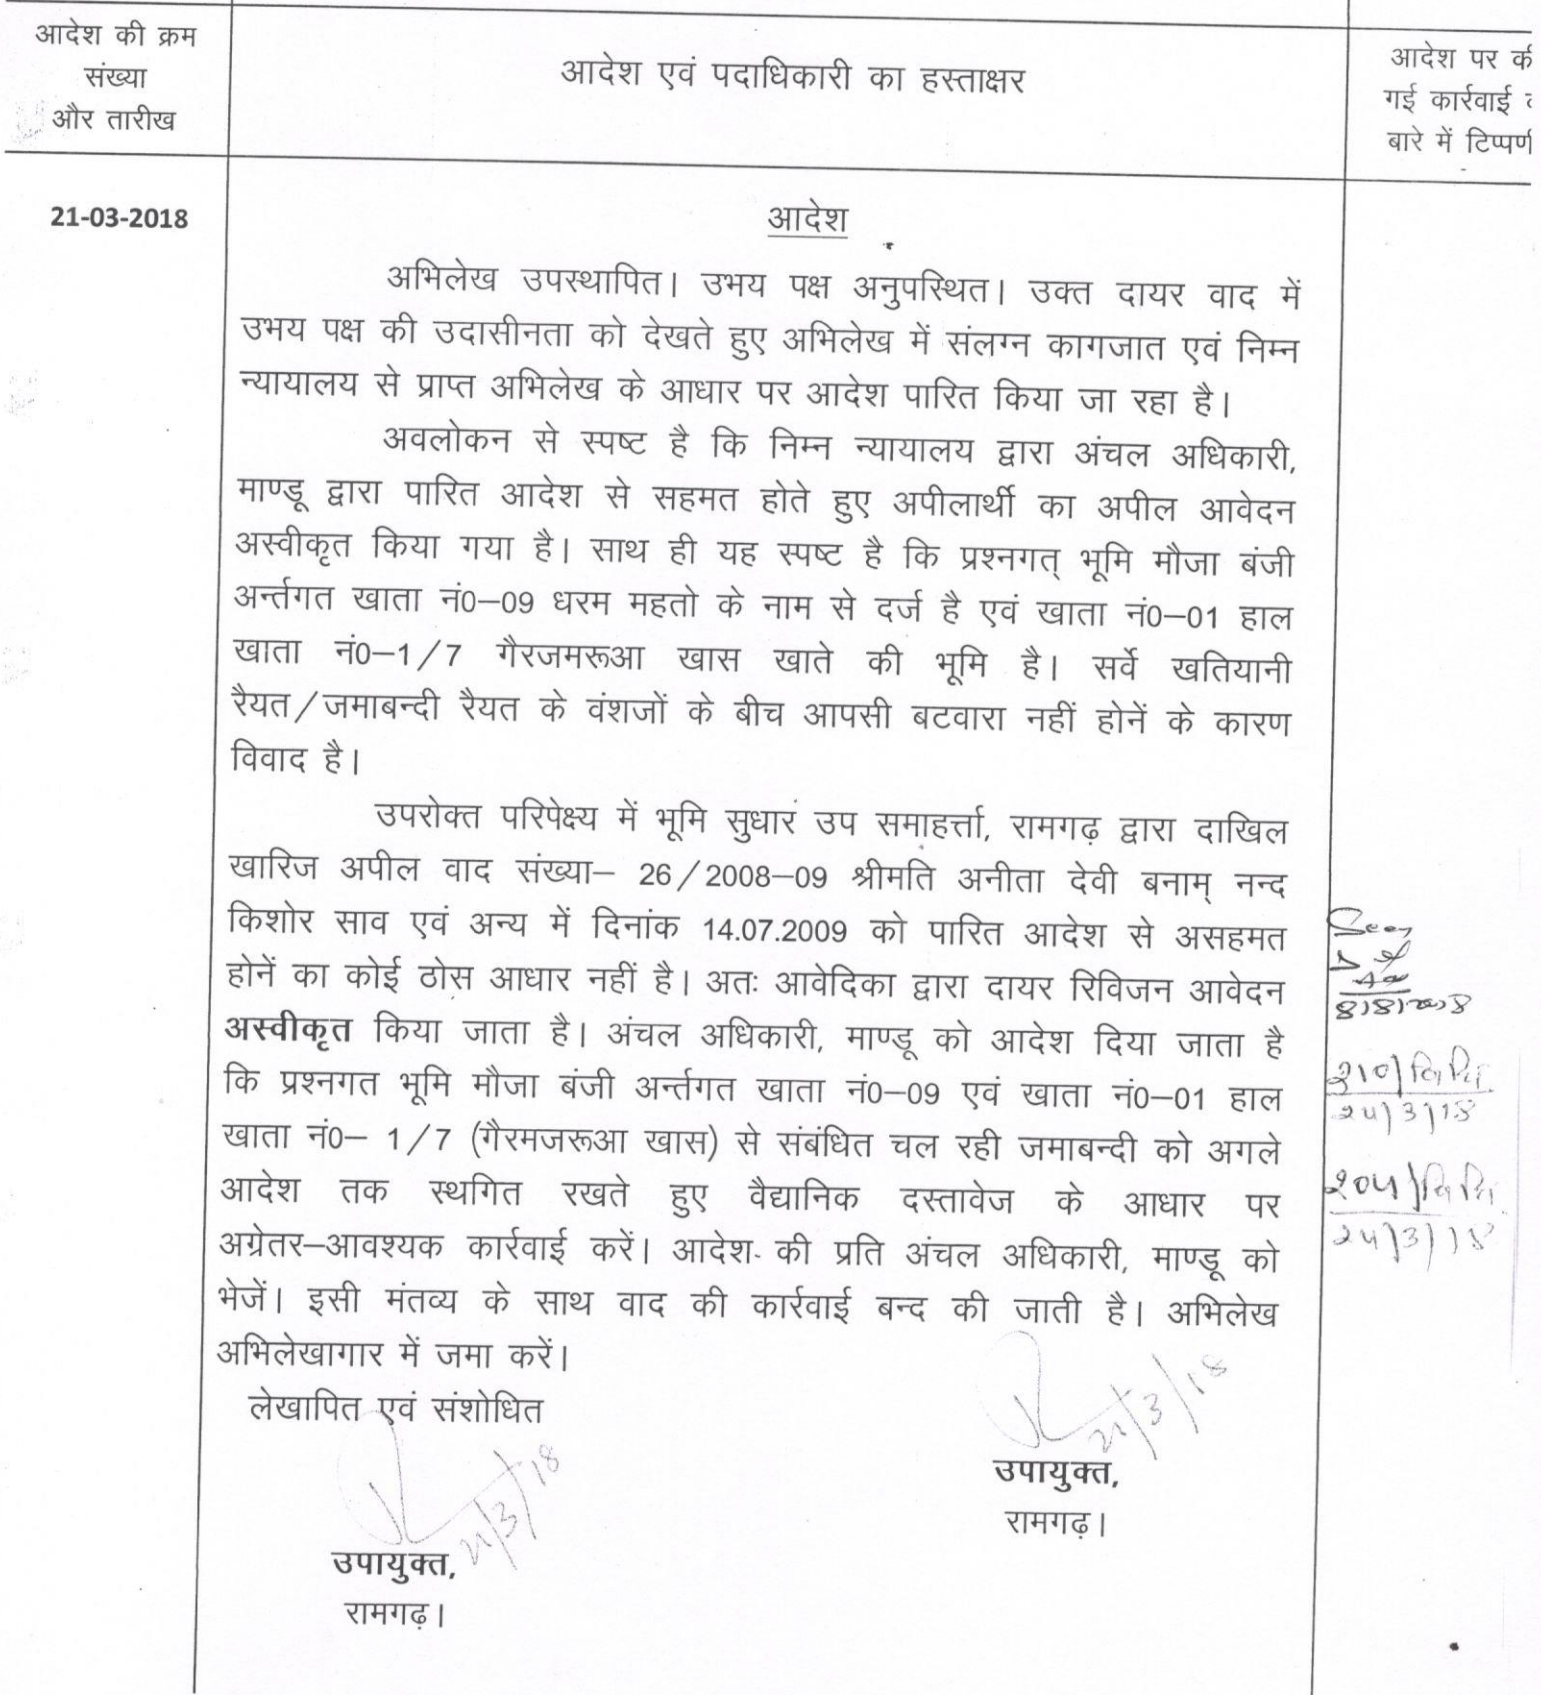 आदेश की क्रम
संख्या
और तारीख
आदेश एवं पदाधिकारी का हस्ताक्षर
आदेश पर की
गई कार्रवाई
बारे में टिप्पणी
21-03-2018
आदेश
अभिलेख उपस्थापित। उभय पक्ष अनुपस्थित। उक्त दायर वाद में
उभय पक्ष की उदासीनता को देखते हुए अभिलेख में संलग्न कागजात एवं निम्न
न्यायालय से प्राप्त अभिलेख के आधार पर आदेश पारित किया जा रहा है।
अवलोकन से स्पष्ट है कि निम्न न्यायालय द्वारा अंचल अधिकारी,
माण्डू द्वारा पारित आदेश से सहमत होते हुए अपीलार्थी का अपील आवेदन
अस्वीकृत किया गया है। साथ ही यह स्पष्ट है कि प्रश्नगत् भूमि मौजा बंजी
अर्न्तगत खाता नं0–09 धरम महतो के नाम से दर्ज है एवं खाता नं0–01 हाल
खाता नं0–1/7 गैरजमरूआ खास खाते की भूमि है। सर्वे खतियानी
रैयत/जमाबन्दी रैयत के वंशजों के बीच आपसी बटवारा नहीं होनें के कारण
विवाद है।
उपरोक्त परिपेक्ष्य में भूमि सुधार उप समाहर्त्ता, रामगढ़ द्वारा दाखिल
खारिज अपील वाद संख्या– 26/2008–09 श्रीमति अनीता देवी बनाम् नन्द
किशोर साव एवं अन्य में दिनांक 14.07.2009 को पारित आदेश से असहमत
होनें का कोई ठोस आधार नहीं है। अतः आवेदिका द्वारा दायर रिविजन आवेदन
अस्वीकृत किया जाता है। अंचल अधिकारी, माण्डू को आदेश दिया जाता है
कि प्रश्नगत भूमि मौजा बंजी अर्न्तगत खाता नं0–09 एवं खाता नं0–01 हाल
खाता नं0– 1/7 (गैरमजरूआ खास) से संबंधित चल रही जमाबन्दी को अगले
आदेश तक स्थगित रखते हुए वैद्यानिक दस्तावेज के आधार पर
अग्रेतर–आवश्यक कार्रवाई करें। आदेश की प्रति अंचल अधिकारी, माण्डू को
भेजें। इसी मंतव्य के साथ वाद की कार्रवाई बन्द की जाती है। अभिलेख
अभिलेखागार में जमा करें।
लेखापित एवं संशोधित
21/3/18
उपायुक्त,
रामगढ़।
21/3/18
उपायुक्त,
रामगढ़।
Seen
210/विधि
24/3/18
204/विधि
24/3/18